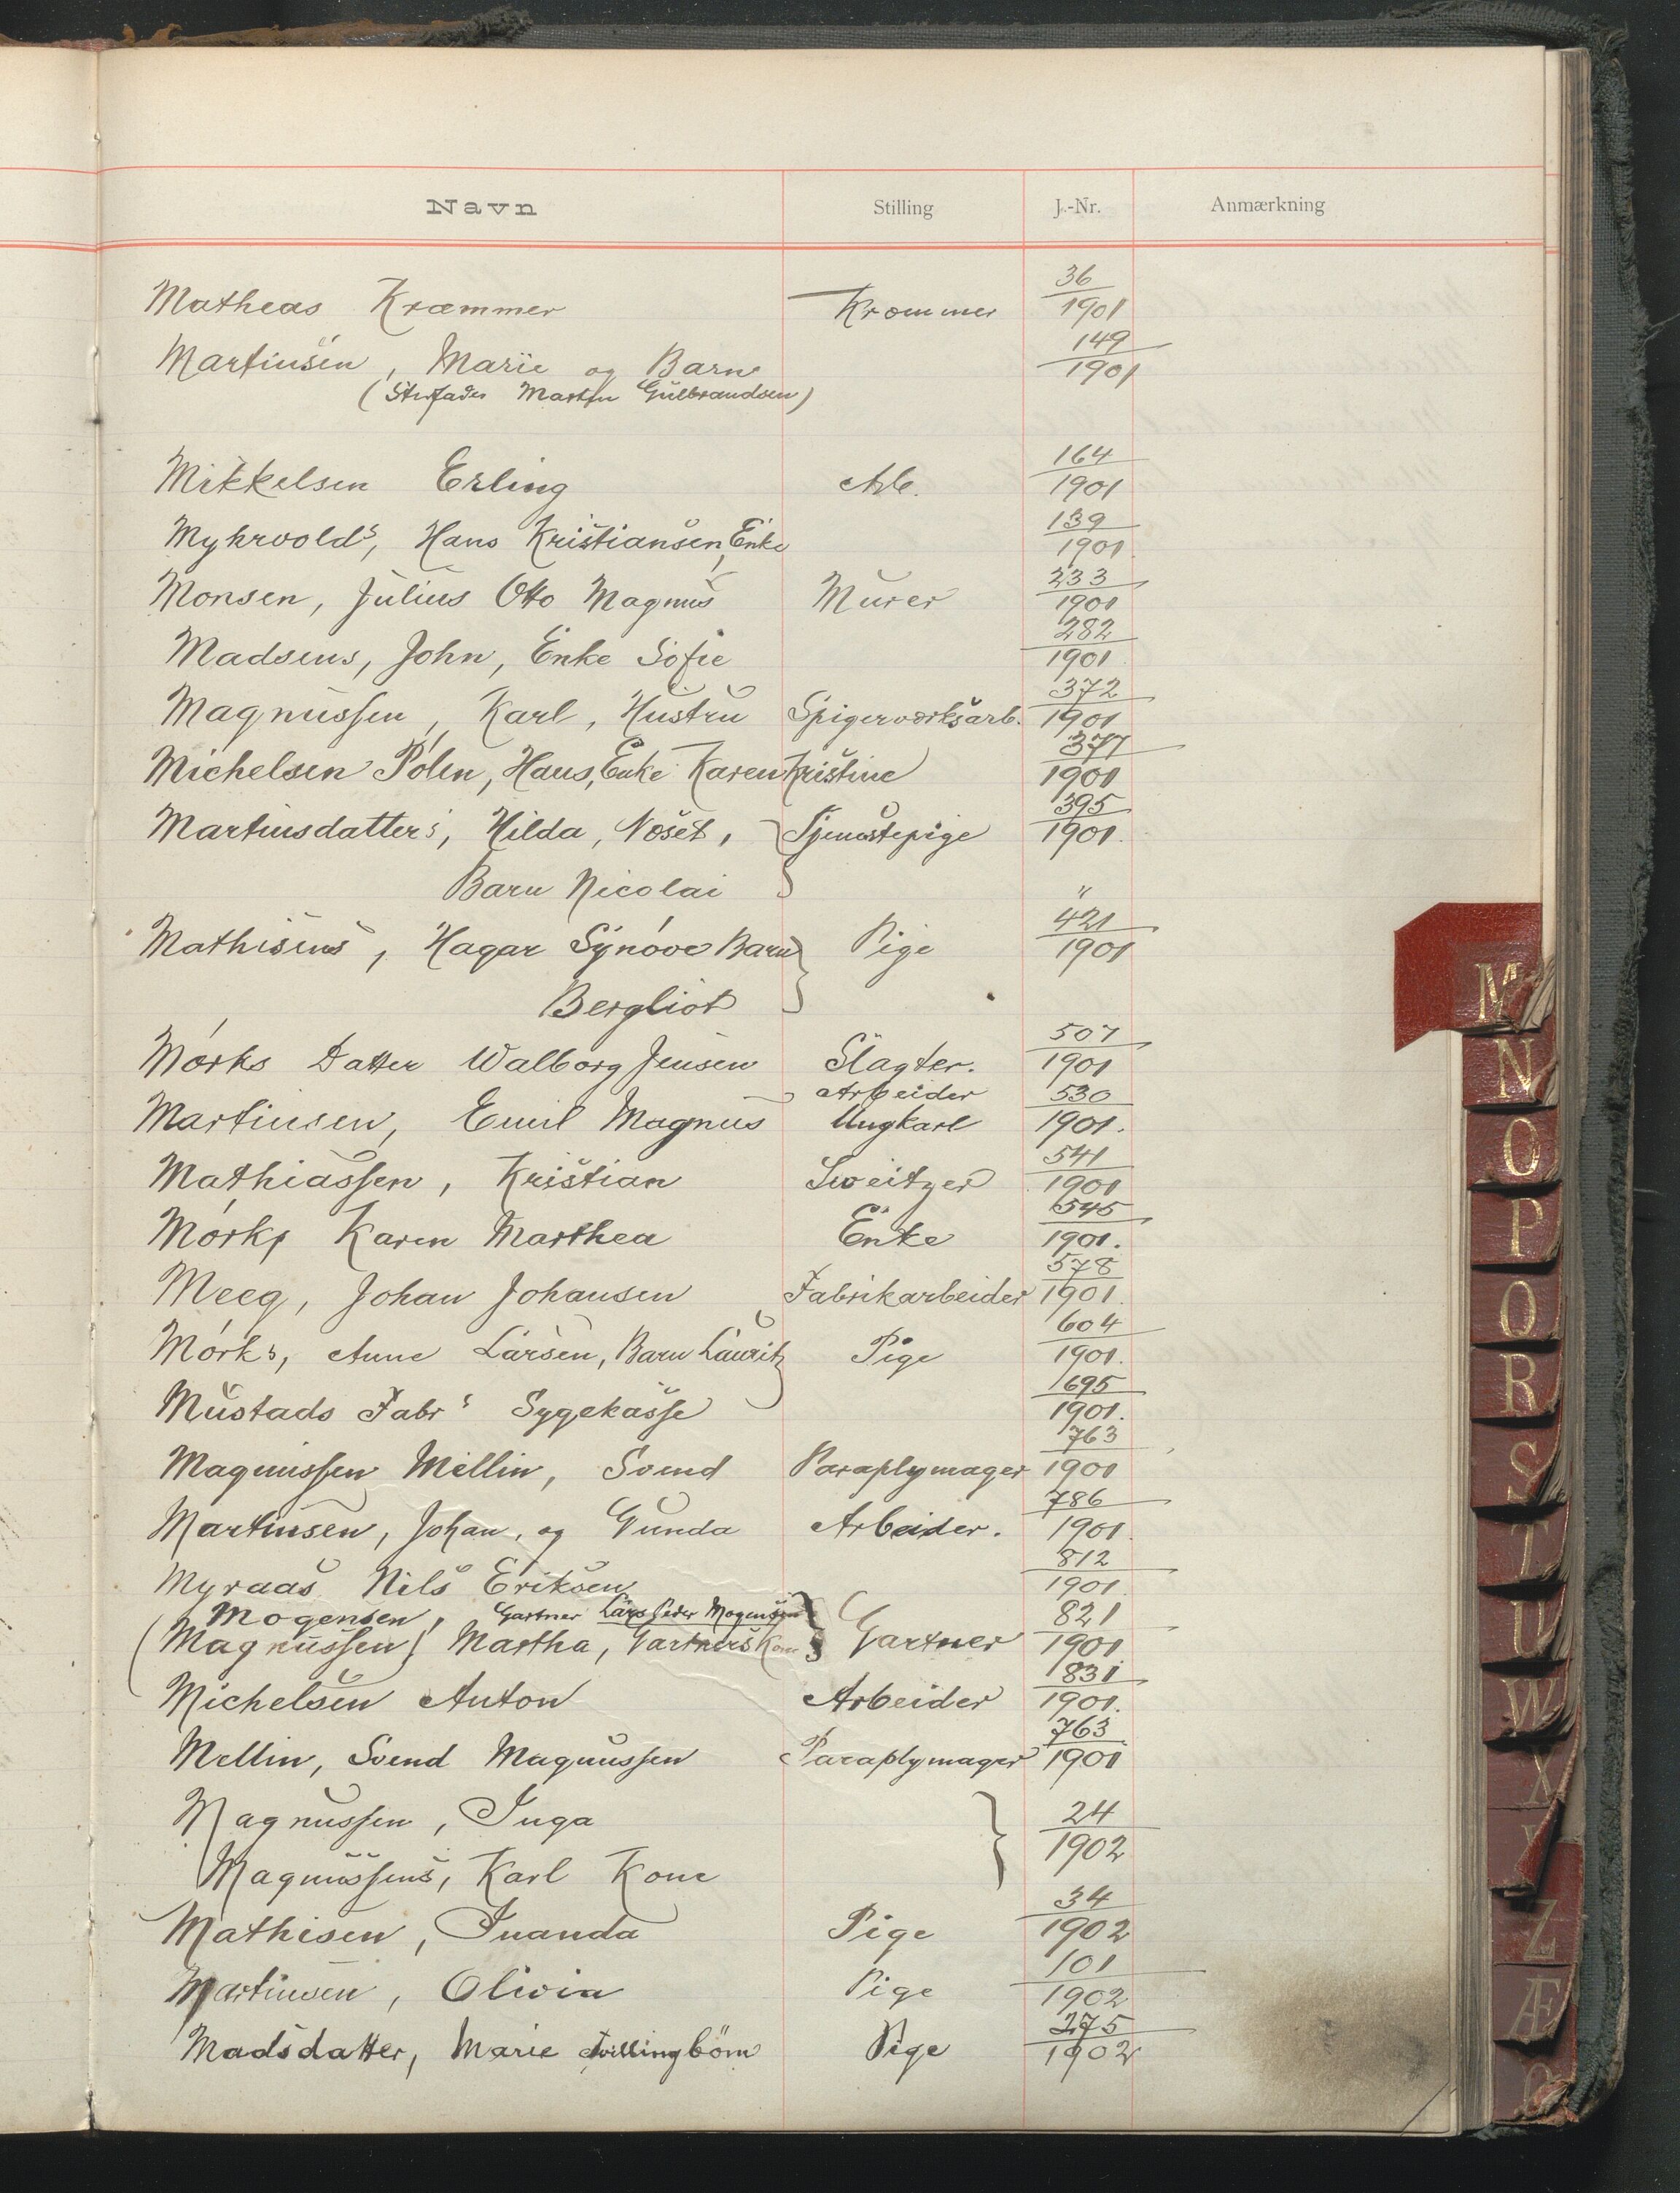 Navn Stilling J.-Nr. Anmærkning
Matheas Kræmmer Kræmmer 36/1901
Martinsen, Marie og Barn 149/1901
(Stedfader Martin Gulbrandsen)
Mikkelsen Erling Arb. 164/1901
Myhrvolds, Hans Kristiansen, Enke 139/1901
Monsen, Julius Otto Magnus Murer 233/1901
Madsens, John, Enke Sofie 282/1901
Magnussen, Karl, Hustru Spigerværksarb. 372/1901
Michelsen Polen, Hans, Enke Karen Kristine 377/1901
Martinsdatter's, Hilda, Noset, Tjenestepige 395/1901
Barn Nicolai "
Mathisens, Hagar Synöve Barn Pige 421/1901
Bergliot
Mörks Datter Walborg Jensen Slagter. 507/1901
Martinsen, Emil Magnus Arbeider Ungkarl 530/1901.
Mathiassen, Kristian Sveitzer 541/1901
Mörks Karen Marthea Enke 545/1901.
Meeg, Johan Johansen Fabrikarbeider 578/1901.
Mörks, Anne Larsen, Barn Lauritz Pige 604/1901.
Mustads Fabrs Sygekasse 695/1901.
Magnussen Mellin, Svend Paraplymager 763/1901
Martinsen, Johan, og Gunda Arbeider. 786/1901
Myraas Nils Eriksen 812/1901
Mogensen, Gartner Lars Peder Mogensen 821/1901
(Magnussen) Martha, Gartners Kone Gartner
Michelsen Anton Arbeider 831/1901.
Mellin, Svend Magnussen Paraplymager 763/1901
Magnussen, Inga 24/1902
Magnussens, Karl Kone
Mathisen, Inanda Pige 34/1902
Martinsen, Olivia Pige 101/1902
Madsdatter, Marie tvillingbörn Pige 275/1902
M
N
O
P
Q
R
S
T
U
W
X
Y
Z
Æ
Ø